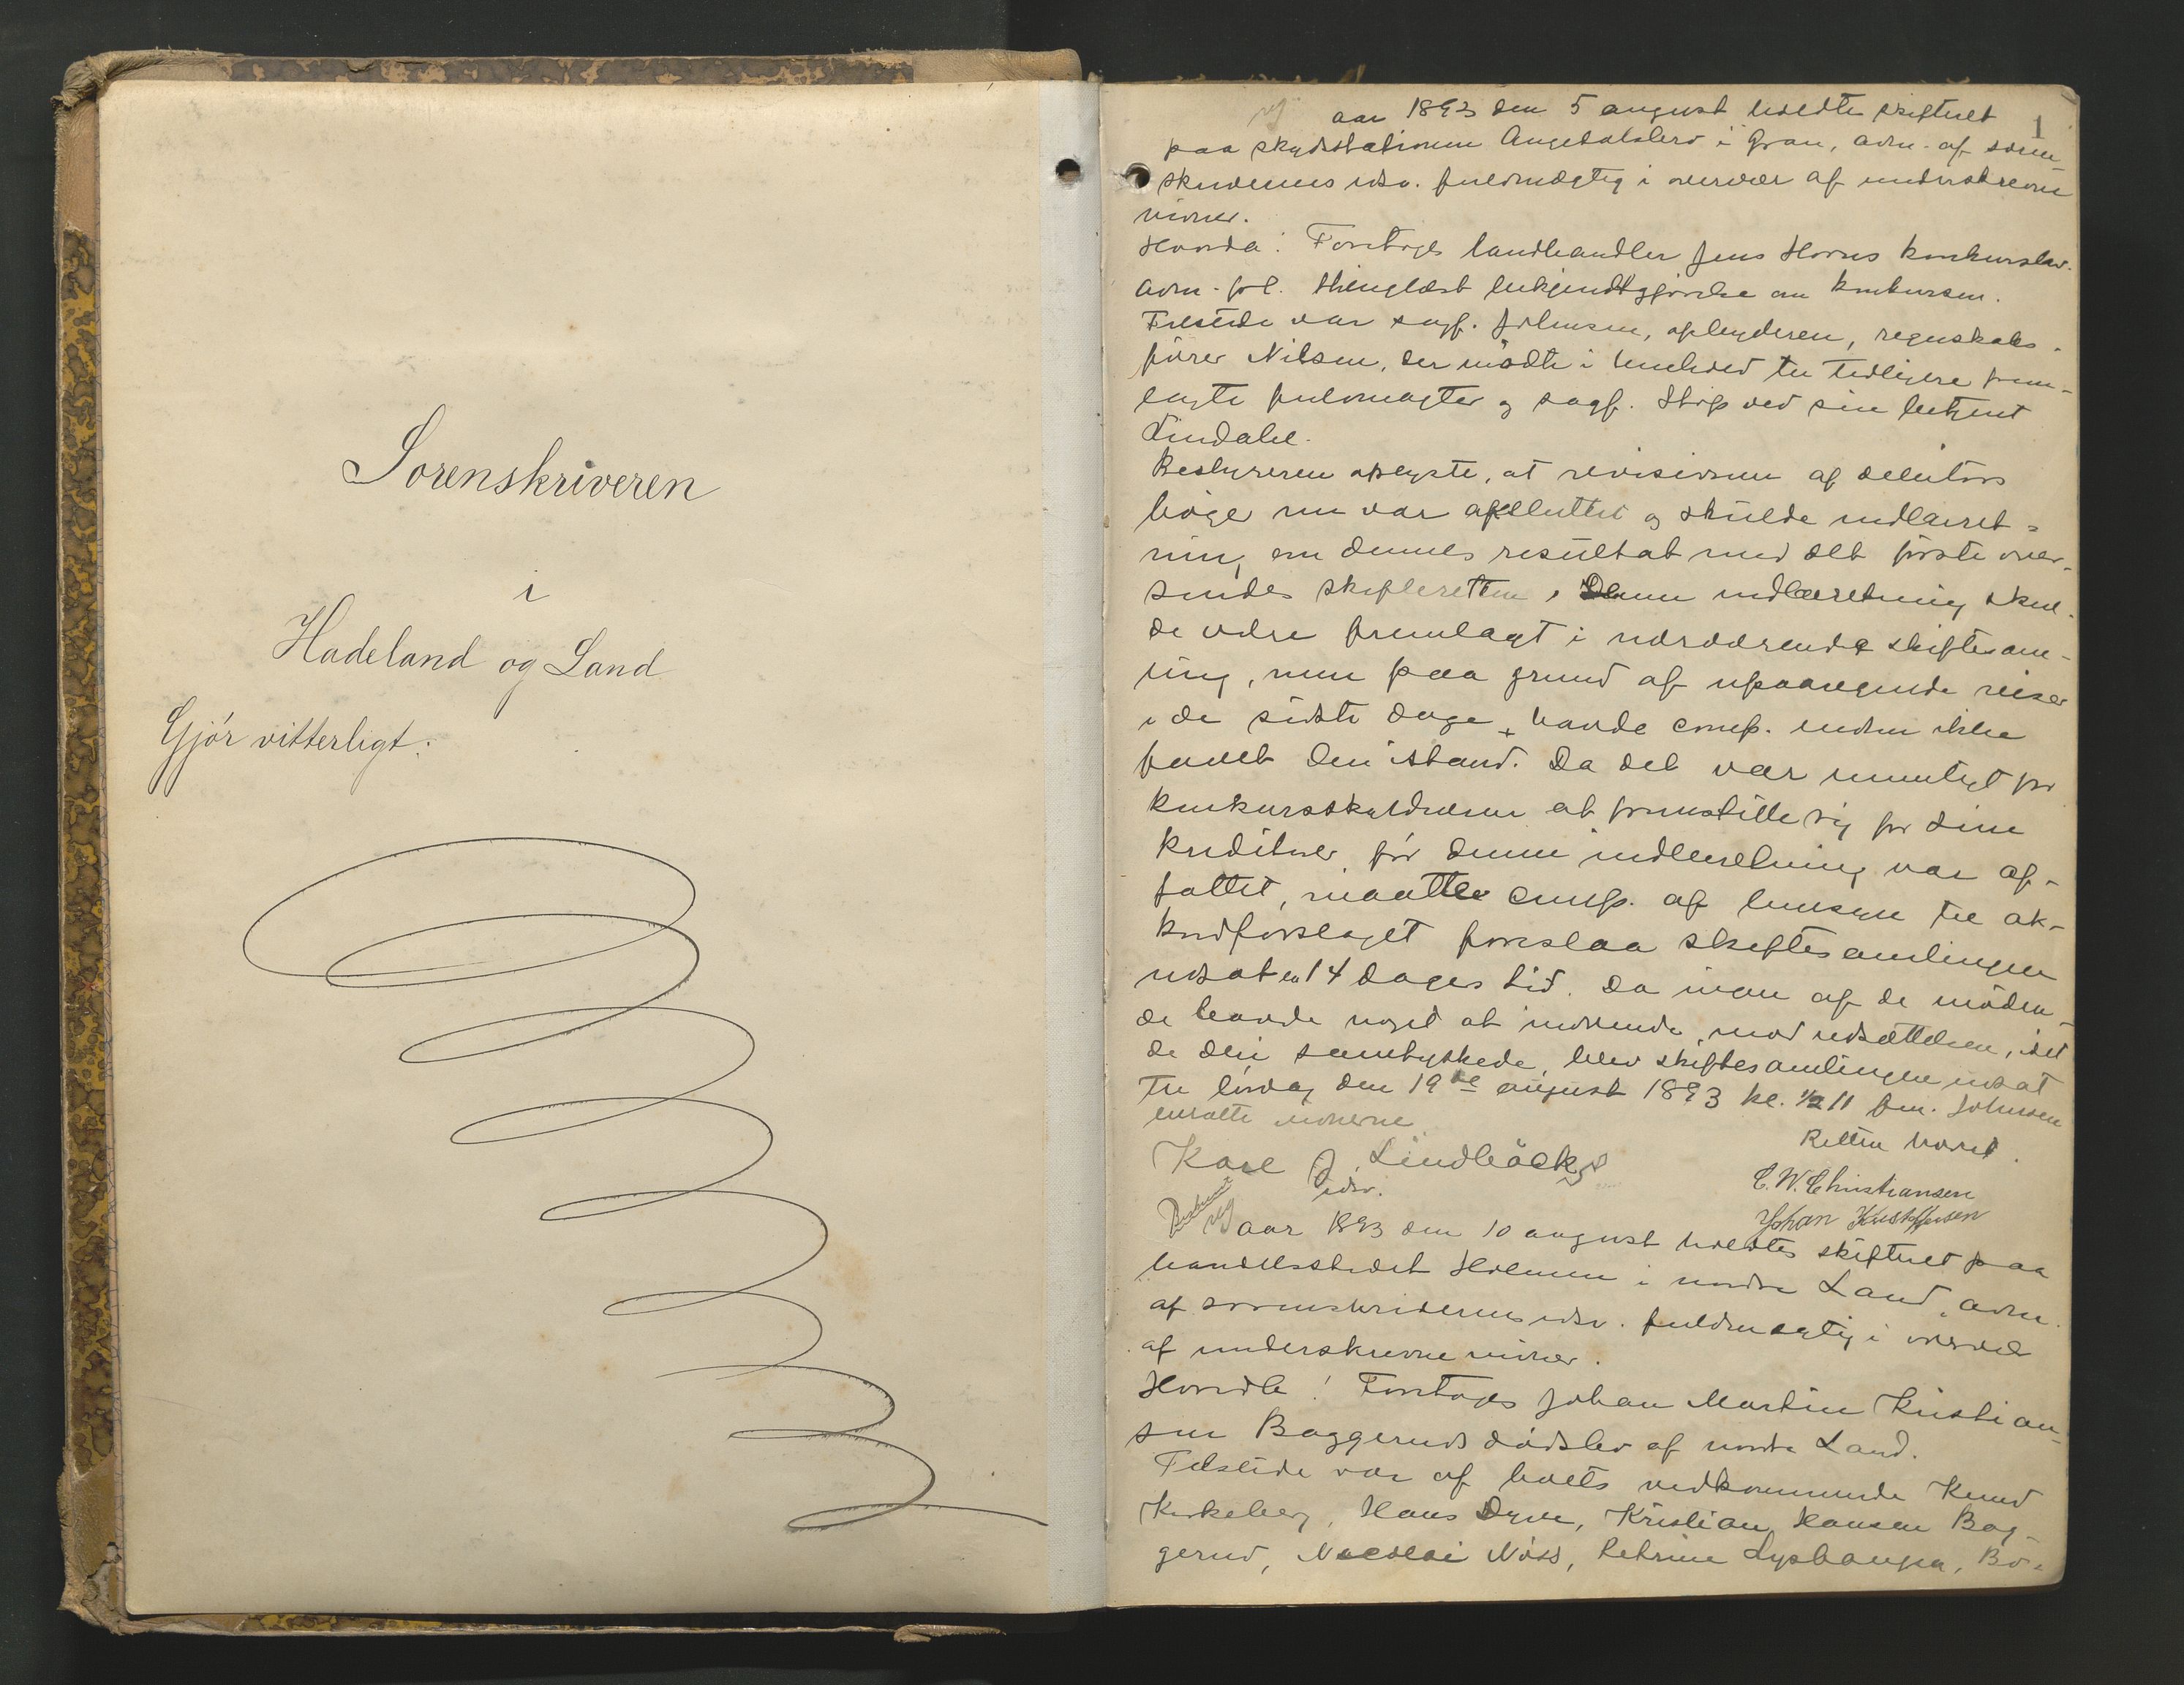 Sorenskriveren
i
Hadeland og Land
Gjör vitterligt:
1
aar 1893 den 5 august holdtes skifteret
paa skydsstationen i Gran, adm. af soren-
skriverens edsv. fuldmægtig i overvær af underskrevne
vidner.
Hvorda: Foretoges landhandler Jens Horns konkursbo.
adm. fol. thinglæst bekjendtgjørelse om konkursen.
Tilstede var sagf. Johnsen, opbyderen, regnskabs-
fører Nilsen, der mødte i henhold til tidligere frem-
lagte fuldmagter og sagf. ved sin betjent
Lindahl.
Bestyreren oplyste, at revisionen af debitors
bøger nu var afsluttet og skulde indberet-
ning om dennes resultat med det første over-
sendes skifteretten. Denne indberetning skul-
de være fremlagt i nærværende skiftesam-
ling, men paa grund af upaaregnede reiser
i de sidste dage havde comp. endnu ikke
faaet den istand. Da det var umuligt for
konkursskyldneren at fremstille sig for sine
kreditorer før denne indberetning var af-
fattet, maatte comp. af hensyn til ak-
kordforslaget foreslaa skiftesamlingen
udsat en 14 dages tid. Da ingen af de møden-
de havde noget at indvende mod udsættelsen, idet
de deri samtykkede, blev skiftesamlingen udsat
til lördag den 19de august 1893 kl. 1/2 11 fm. Johnsen
ensatte vidnerne.
Retten hævet.
Karl J. Lindbäck
edsv.
C. W. Christiansen
Johan Kristoffersen
aar 1893 den 10 august holdtes skifteret paa
handelsstedet Holmen i nordre Land, adm.
af sorenskriverens edsv. fuldmægtig i overvær
af underskrevne vidner.
Hvorda! Foretoges Johan Martin Kristian-
sen Baggeruds dødsbo af nordre Land.
Tilstede var af boets vedkommende Knud
Kirkeberg, Hans Dyve, Kristian Hansen Bag-
gerud, Nicolai Nöss, Bö-